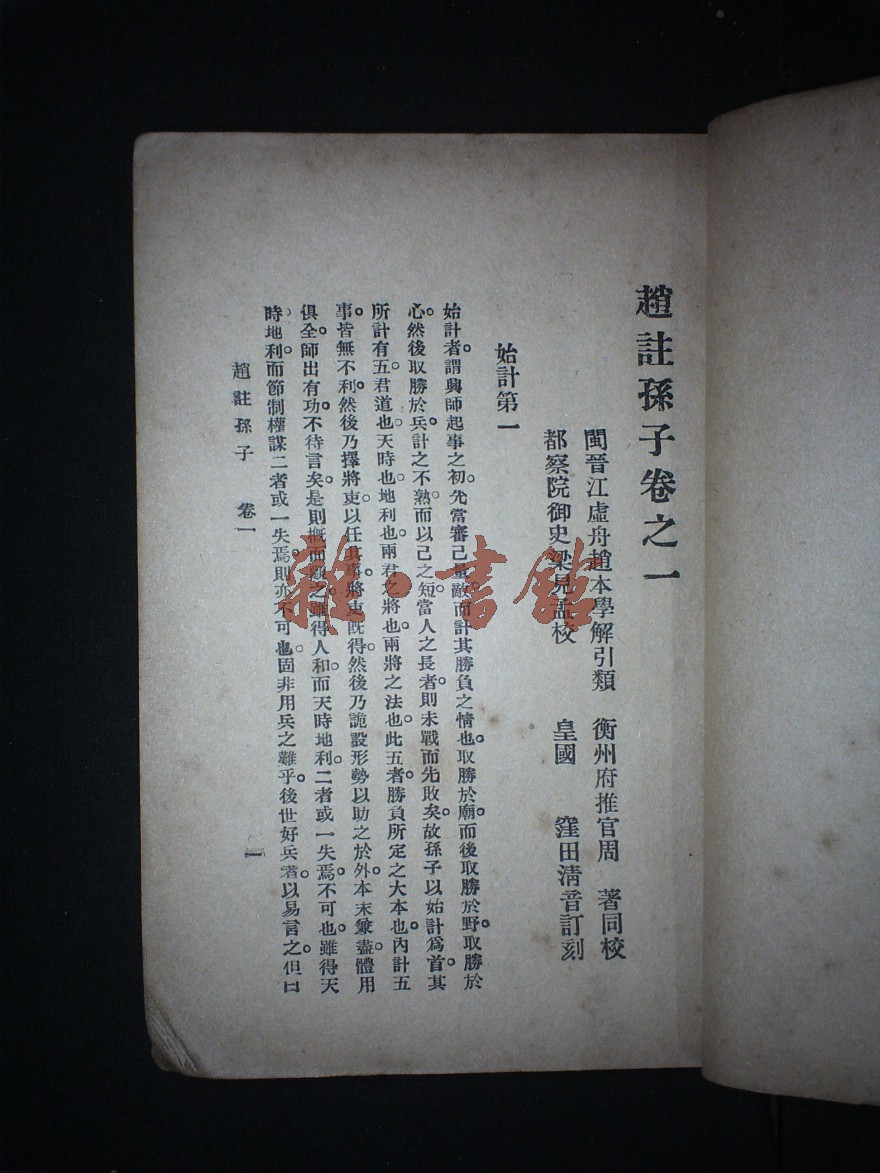 趙註孫子卷之一
閩晉江虛舟趙本學解引類　衡州府推官周　著同校
都察院御史梁見孟校　皇國　窪田淸音訂刻
始計第一
始計者。謂興師起事之初。先當審己量敵。而計其勝負之情也。取勝於廟。而後取勝於野。取勝於
心。然後取勝於兵。計之不熟。而以己之短。當人之長者。則未戰而先敗矣。故孫子以始計爲首。其
所計有五。君道也。天時也。地利也。兩君之將也。兩將之法也。此五者。勝負所定之大本也。內計五
事。皆無不利。然後乃擇將吏以任其事。將吏旣得。然後乃詭設形勢以助之於外。本末兼盡。體用
俱全。師出有功。不待言矣。是則槪而觀之。雖得人和。而天時地利二者或一失焉。不可也。雖得天
時地利。而節制權謀二者或一失焉。則亦不可也。固非用兵之難乎。後世好兵者。以易言之。但曰
趙註孫子　卷一
一
雜·書館